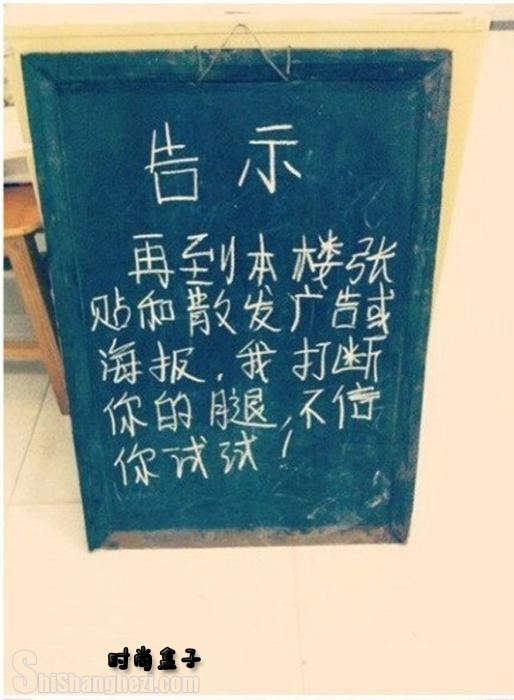 告示
再到本楼张
贴和散发广告或
海报，我打断
你的腿，不信
你试试！
时尚盒子
ShiShanghezi.com